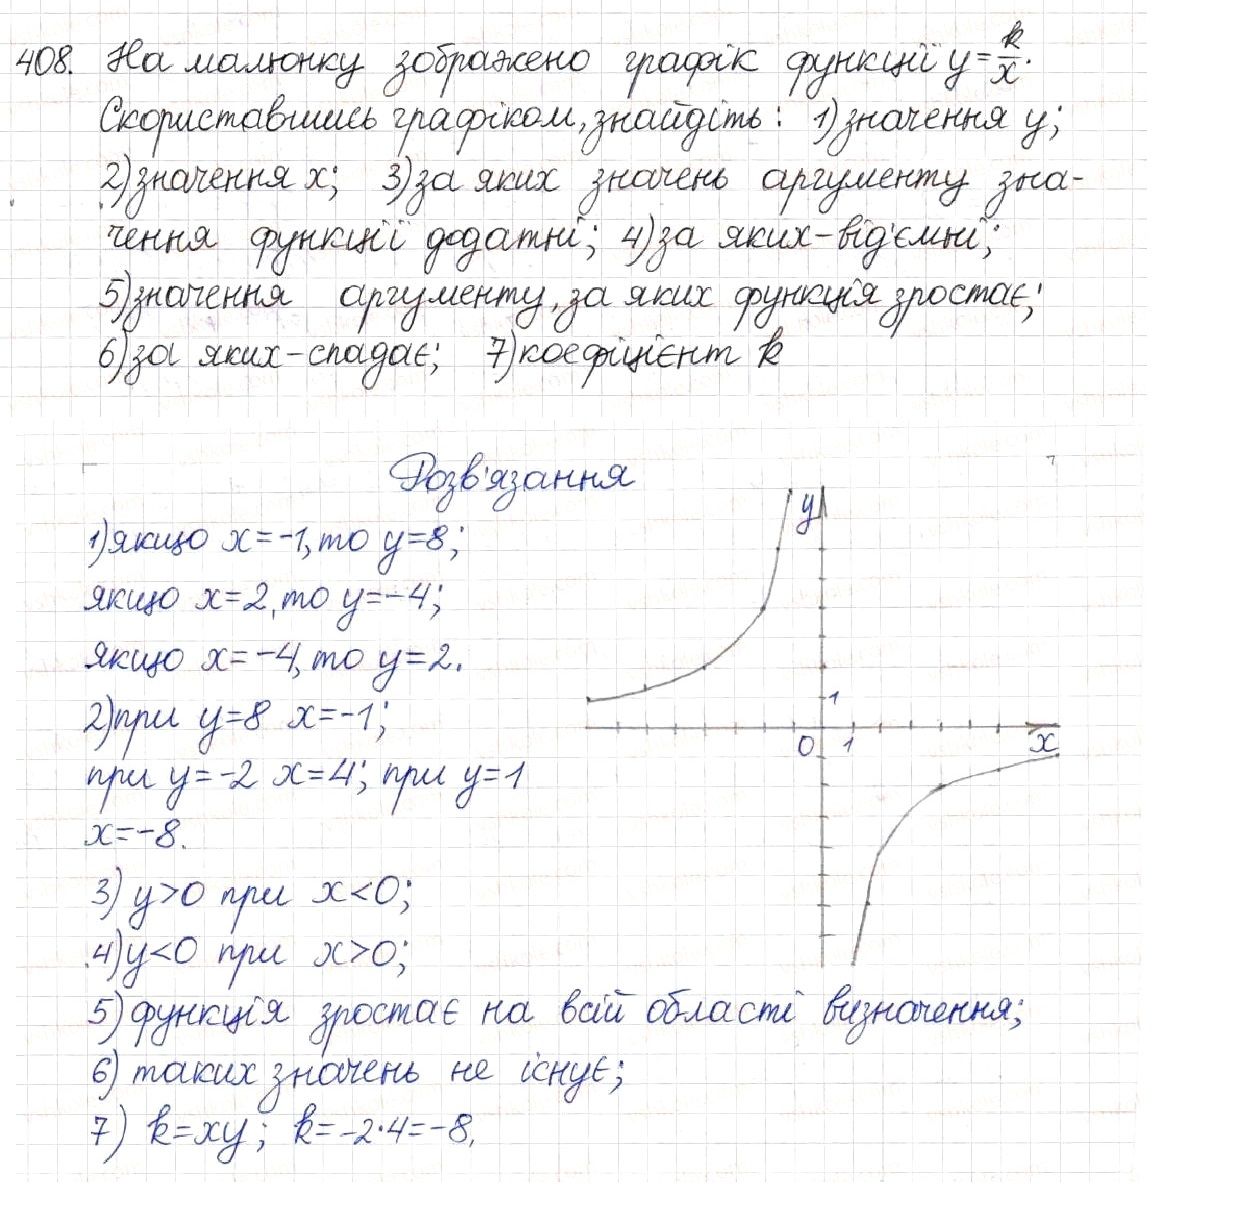 408. На малюнку зображено графік функції y=k/x.
Скориставшись графіком, знайдіть: 1) значення y;
2) значення x; 3) за яких значень аргументу зна-
чення функції додатні; 4) за яких - від'ємні;
5) значення аргументу, за яких функція зростає;
6) за яких - спадає; 7) коефіцієнт k
Розв'язання
1) якщо x=-1, то y=8;
якщо x=2, то y=-4;
якщо x=-4, то y=2.
2) при y=8 x=-1;
при y=-2 x=4; при y=1
x=-8.
3) y>0 при x<0;
4) y<0 при x>0;
5) функція зростає на всій області визначення;
6) таких значень не існує;
7) k=xy; k=-2·4=-8.
y
1
0 1 x